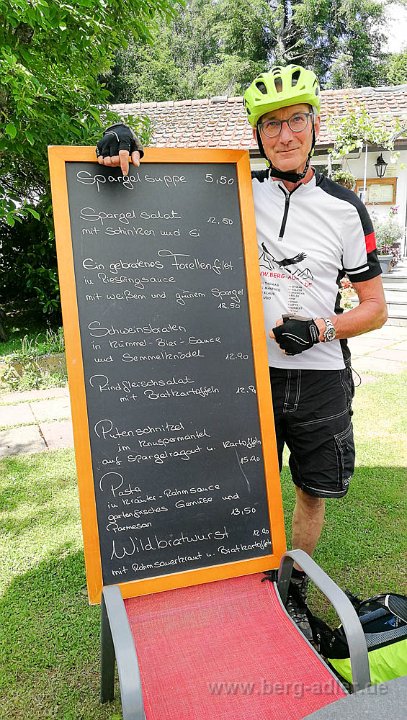 Spargelsuppe 5,50
Spargelsalat 12,50
mit Schinken und Ei
Ein gebratenes Forellenfilet
in Rieslingsauce
mit weißem und grünem Spargel
18,50
Schweinsbraten
in Kümmel-Bier-Sauce
und Semmelknödel 12,90
Rindfleischsalat
mit Bratkartoffeln 12,90
Putenschnitzel
im Knuspermantel
auf Spargelragout u. Kartoffeln
15,90
Pasta
in Kräuter-Rahmsauce
gartenfrisches Gemüse und
Parmesan 13,50
Wildbratwurst 12,90
mit Rahmsauerkraut u. Bratkartoffeln
www.berg-adler.de